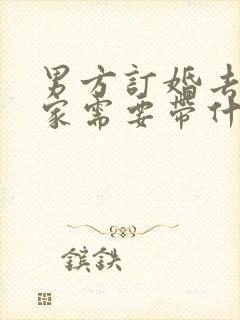 男方訂婚去
家需要帶什
鑌鉄